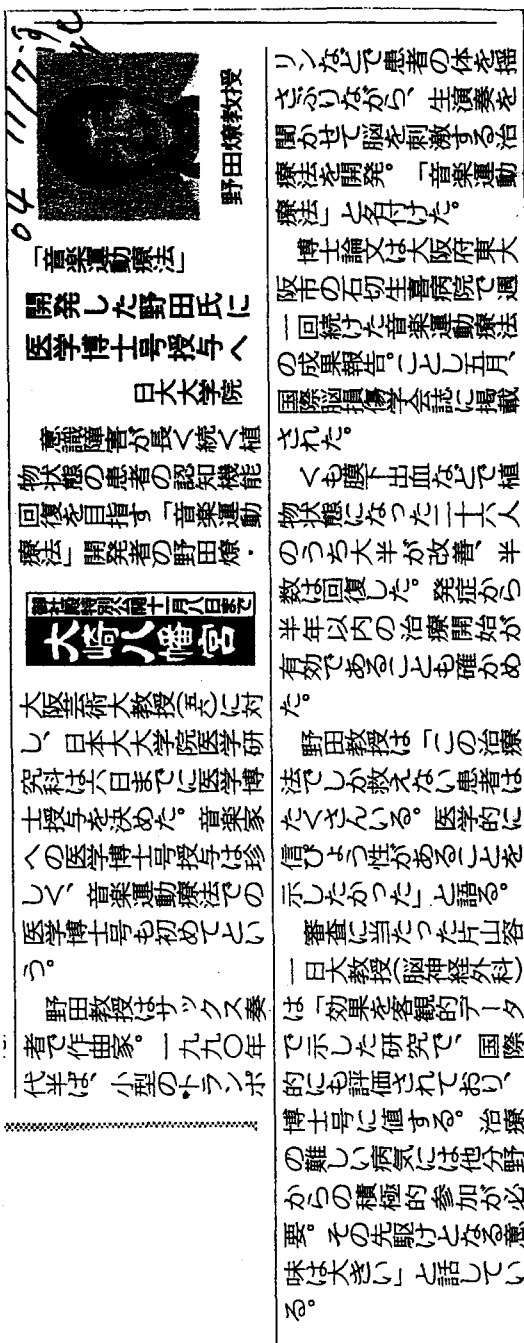 04 11/7
野田燎教授
「音楽運動療法」
開発した野田氏に
医学博士号授与へ
日大大学院
意識障害が長く続く植
物状態の患者の認知機能
回復を目指す「音楽運動
療法」開発者の野田燎・
御社殿特別公開十一月八日まで
大崎八幡宮
大阪芸術大教授に対
し、日本大大学院医学研
究科は六日までに医学博
士授与を決めた。音楽家
への医学博士号授与は珍
しく、音楽運動療法での
医学博士号も初めてとい
う。
野田教授はサックス奏
者で作曲家。一九九〇年
代半ば、小型のトランポ
リンなどで患者の体を揺
さぶりながら、生演奏を
聞かせて脳を刺激する治
療法を開発。「音楽運動
療法」と名付けた。
博士論文は大阪府東大
阪市の石切生喜病院で週
一回続けた音楽運動療法
の成果報告。ことし五月、
国際脳損傷学会誌に掲載
された。
くも膜下出血などで植
物状態になった二十六人
のうち大半が改善、半
数は回復した。発症から
半年以内の治療開始が
有効であることも確かめ
た。
野田教授は「この治療
法でしか救えない患者は
たくさんいる。医学的に
信ぴょう性があることを
示したかった」と語る。
審査に当たった片山容
一日大教授（脳神経外科）
は「効果を客観的データ
で示した研究で、国際
的にも評価されており、
博士号に値する。治療
の難しい病気には他分野
からの積極的参加が必
要。その先駆けとなる意
味は大きい」と話してい
る。